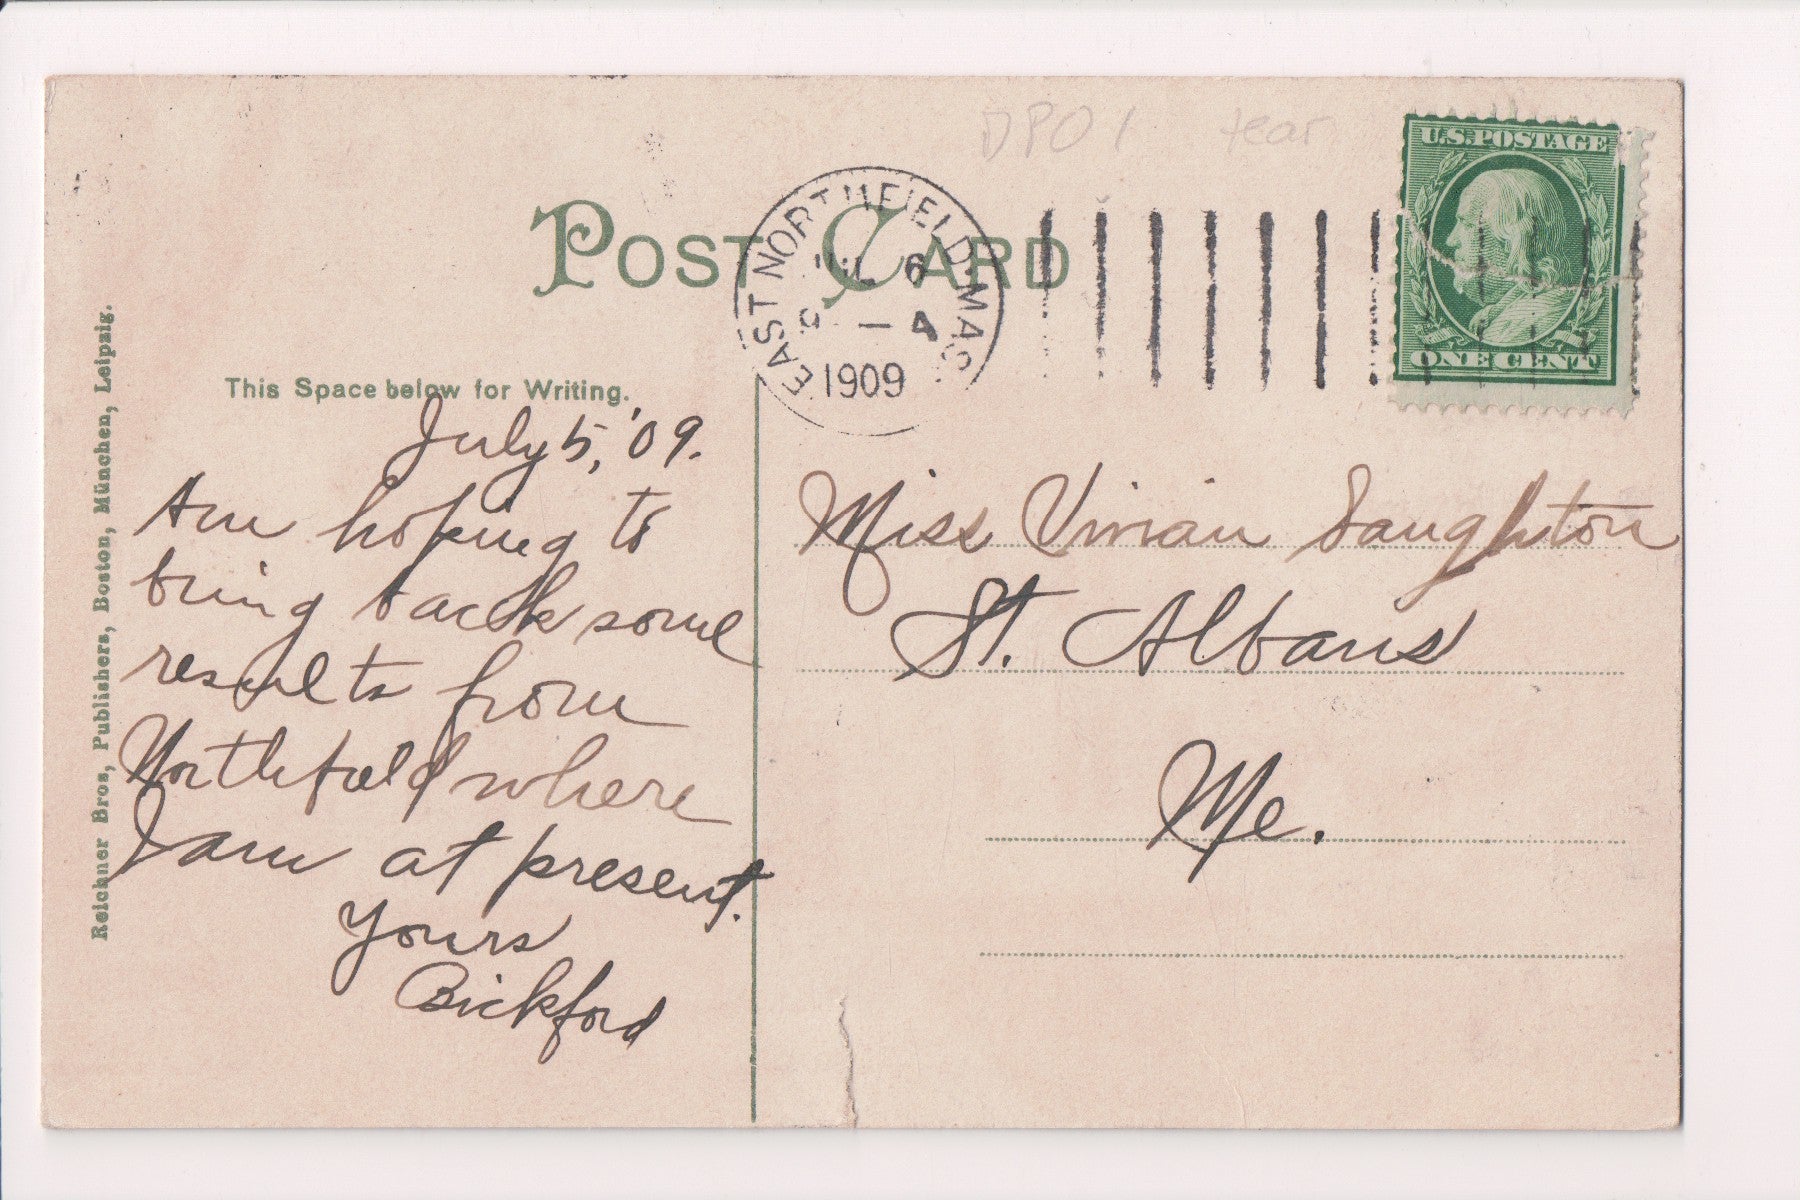 DPO1 tear
U.S. POSTAGE
ONE CENT
POST CARD
EAST NORTHFIELD. MASS
JUL 6
9 - A
1909
This Space below for Writing.
July 5, '09.
Am hoping to
bring back some
results from
Northfield where
I am at present.
Yours
Bickford
Miss Vivian Saughton
St. Albans
Me.
Reichner Bros, Publishers, Boston, München, Leipzig.